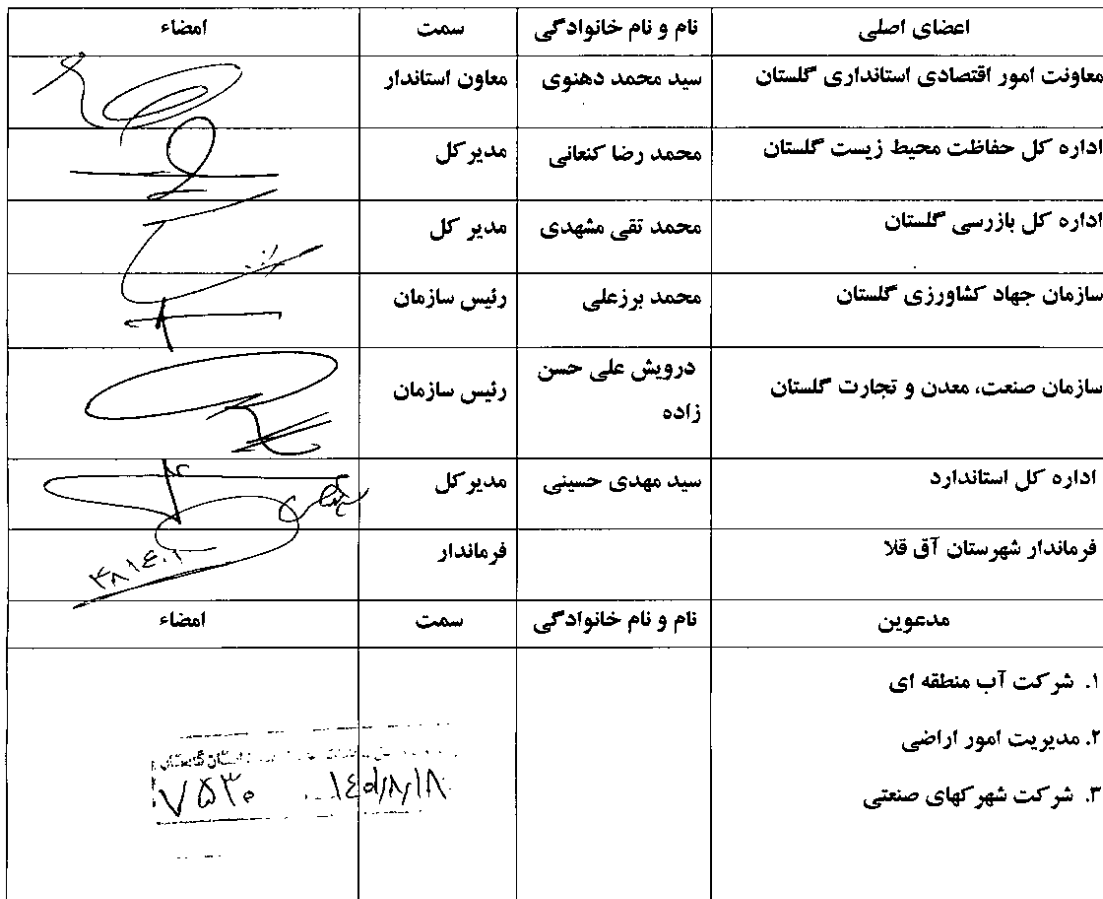 اعضای اصلی نام و نام خانوادگی سمت امضاء
معاونت امور اقتصادی استانداری گلستان سید محمد دهنوی معاون استاندار
اداره کل حفاظت محیط زیست گلستان محمد رضا کنعانی مدیر کل
اداره کل بازرسی گلستان محمد تقی مشهدی مدیر کل
سازمان جهاد کشاورزی گلستان محمد برزعلی رئیس سازمان
سازمان صنعت، معدن و تجارت گلستان درویش علی حسن رئیس سازمان
زاده
اداره کل استاندارد سید مهدی حسینی مدیر کل
فرماندار شهرستان آق قلا فرماندار
مدعوین نام و نام خانوادگی سمت امضاء
۱. شرکت آب منطقه ای
۲. مدیریت امور اراضی
۳. شرکت شهرکهای صنعتی
استان گلستان
۷۵۳۰